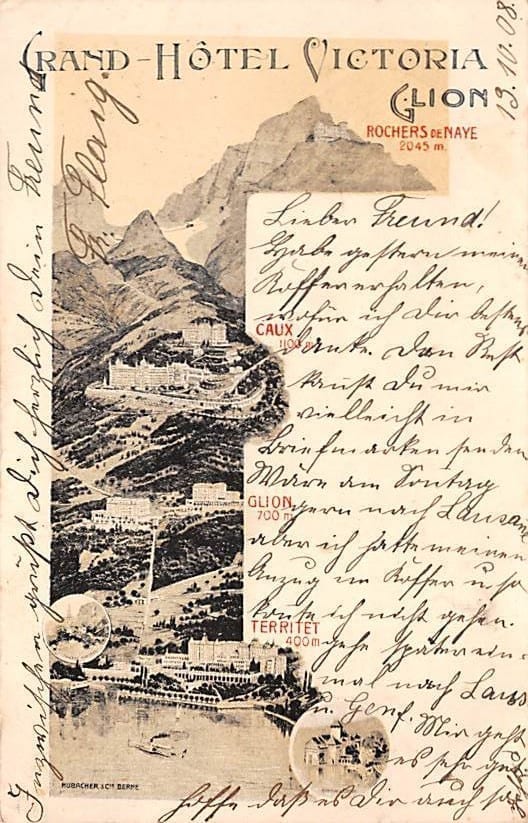 GRAND-HÔTEL VICTORIA
GLION
ROCHERS DE NAYE
2045 m.
13.10.08.
Lieber Freund!
Habe gestern meinen
Koffer erhalten,
wofür ich Dir besten
danke. Den Rest
kannst Du mir
vielleicht in
Briefmarken senden
Wäre am Sonntag
gern nach Lausanne
aber ich hatte meinen
Anzug im Koffer u. so
konte ich nicht gehen.
gehe später ein-
mal nach Laus
u. Genf. Mir geht
es sehr gut
hoffe daß es Dir auch so
Inzwischen grüßt Dich herzlich dein Freund
CAUX
1100 m
GLION
700 m
TERRITET
400 m
HUBACHER & CIE BERNE